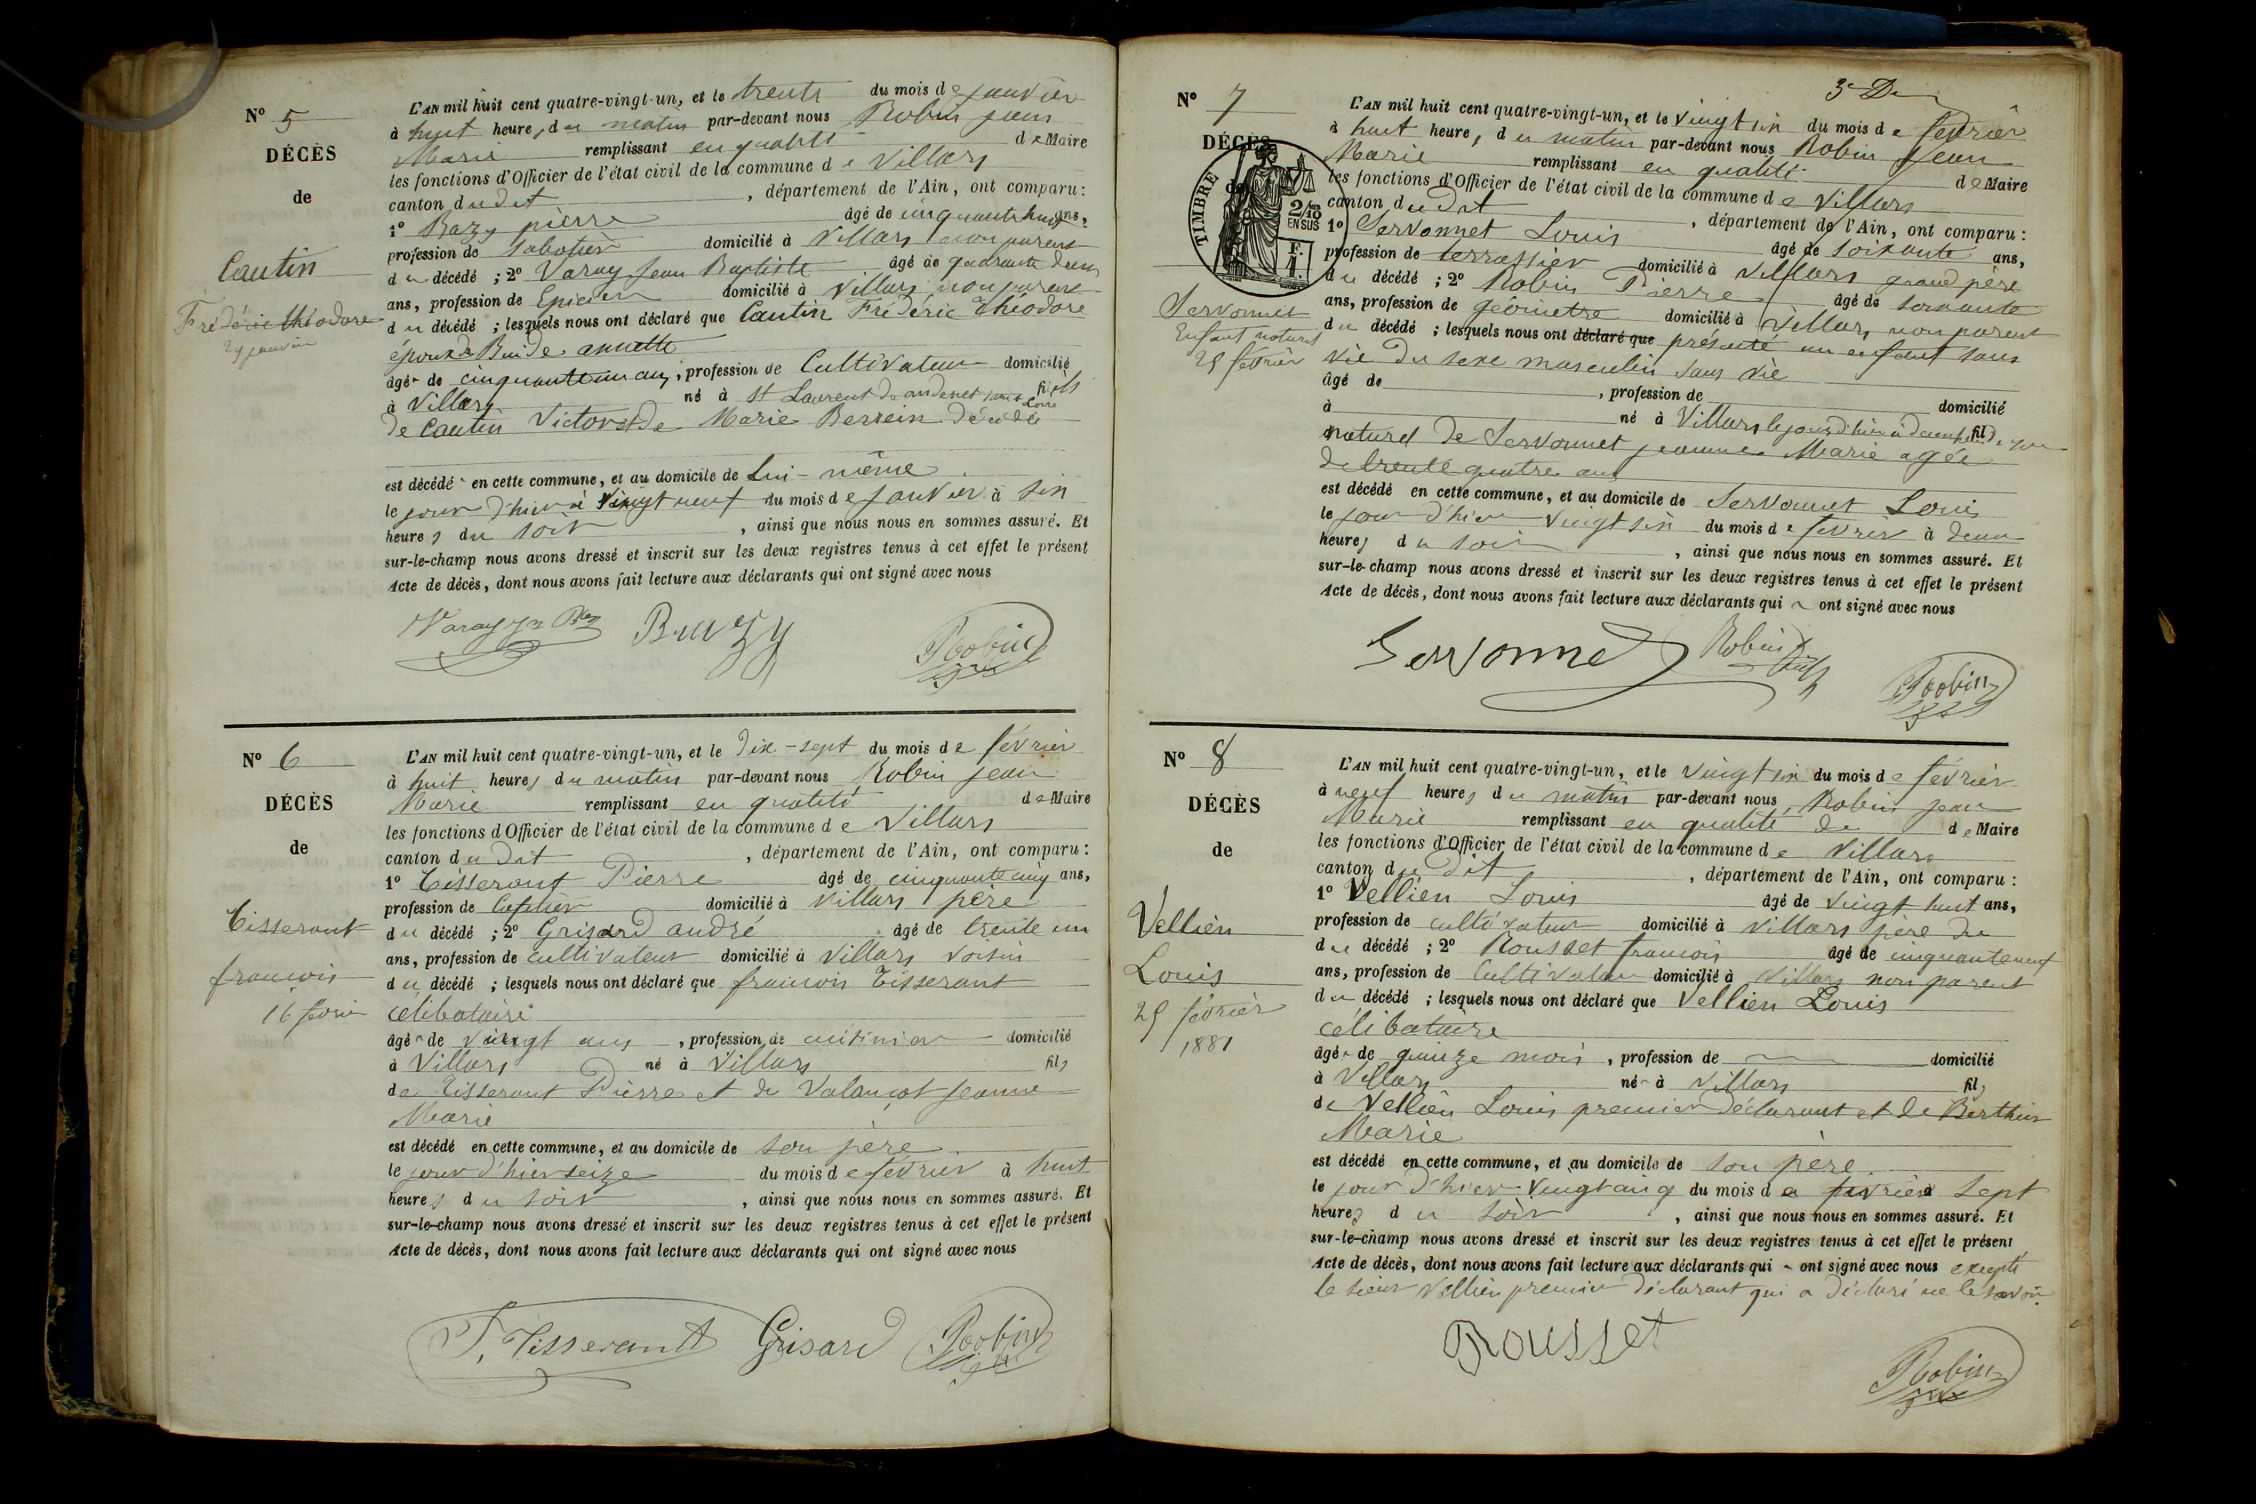 N° 5
DÉCÈS
de
Cautin
Frédéric théodore
29 janvier
L'AN mil huit cent quatre-vingt-un, et le trente du mois de janvier
à huit heures, du matin par-devant nous Robin jean
Marie remplissant en qualité de Maire
les fonctions d'Officier de l'état civil de la commune de Villars
canton dudit, département de l'Ain, ont comparu :
1° Bazy pierre âgé de cinquante huit ans,
profession de sabotier domicilié à Villars non parent
du décédé ; 2° Varay Jean Baptiste âgé de quarante deux
ans, profession de Epicier domicilié à Villars non parent
du décédé ; lesquels nous ont déclaré que Cautin Frédéric Théodore
époux de Buide annette
âgé de cinquante un ans, profession de Cultivateur domicilié
à Villars né à St Laurent fils
de Cautin Victor et de Marie Berrein décédée
est décédé en cette commune, et au domicile de Lui-même
le jour d'hier à Vingt neuf du mois de janvier à six
heures du soir, ainsi que nous nous en sommes assuré. Et
sur-le-champ nous avons dressé et inscrit sur les deux registres tenus à cet effet le présent
Acte de décès, dont nous avons fait lecture aux déclarants qui ont signé avec nous
Varay Bazy Robin
N° 6
DÉCÈS
de
Tisserant
francois
16 février
L'AN mil huit cent quatre-vingt-un, et le Dix-sept du mois de février
à huit heures du matin par-devant nous Robin jean
Marie remplissant en qualité de Maire
les fonctions d'Officier de l'état civil de la commune de Villars
canton dudit, département de l'Ain, ont comparu :
1° Tisserant Pierre âgé de cinquante cinq ans,
profession de Cafetier domicilié à Villars père
du décédé ; 2° Grisard andré âgé de trente un
ans, profession de cultivateur domicilié à Villars voisin
du décédé ; lesquels nous ont déclaré que francois Tisserant
célibataire
âgé de vingt ans, profession de cuisinier domicilié
à Villars né à Villars fils
de Tisserant Pierre et de Valançot Jeanne
Marie
est décédé en cette commune, et au domicile de son père
le jour d'hier seize du mois de février à huit
heures du soir, ainsi que nous nous en sommes assuré. Et
sur-le-champ nous avons dressé et inscrit sur les deux registres tenus à cet effet le présent
Acte de décès, dont nous avons fait lecture aux déclarants qui ont signé avec nous
P. Tisserant Grisard Robin
3e D
N° 7
DÉCÈS
de
TIMBRE
2/10 EN SUS
F. 1.
Servonnet
Enfant naturel
25 février
L'AN mil huit cent quatre-vingt-un, et le vingt six du mois de février
à huit heure, du matin par-devant nous Robin Jean
Marie remplissant en qualité de Maire
les fonctions d'Officier de l'état civil de la commune de Villars
canton dudit, département de l'Ain, ont comparu :
1° Servonnet Louis âgé de soixante ans,
profession de terrassier domicilié à Villars grand père
du décédé ; 2° Robin Pierre âgé de soixante
ans, profession de géomètre domicilié à Villars non parent
du décédé ; lesquels nous ont déclaré que présenté un enfant sans
vie du sexe masculin sans vie
âgé de, profession de domicilié
à né à Villars le jour d'hier à deux fils
naturel de Servonnet jeanne Marie agée
de trente quatre ans
est décédé en cette commune, et au domicile de Servonnet Louis
le jour d'hier vingt six du mois de février à deux
heures du soir, ainsi que nous nous en sommes assuré. Et
sur-le-champ nous avons dressé et inscrit sur les deux registres tenus à cet effet le présent
Acte de décès, dont nous avons fait lecture aux déclarants qui ont signé avec nous
Servonnet Robin Robin
N° 8
DÉCÈS
de
Vellien
Louis
25 février
1881
L'AN mil huit cent quatre-vingt-un, et le vingt six du mois de février
à neuf heures du matin par-devant nous Robin jean
Marie remplissant en qualité de de Maire
les fonctions d'Officier de l'état civil de la commune de Villars
canton dudit, département de l'Ain, ont comparu :
1° Vellien Louis âgé de vingt huit ans,
profession de cultivateur domicilié à Villars père du
du décédé ; 2° Rousset francois âgé de cinquante neuf
ans, profession de Cultivateur domicilié à Villars non parent
du décédé ; lesquels nous ont déclaré que Vellien Louis
célibataire
âgé de quinze mois, profession de domicilié
à Villars né à Villars fils
de Vellien Louis premier déclarant et de Berthier
Marie
est décédé en cette commune, et au domicile de son père
le jour d'hier vingt cinq du mois de février à sept
heures du soir, ainsi que nous nous en sommes assuré. Et
sur-le-champ nous avons dressé et inscrit sur les deux registres tenus à cet effet le présent
Acte de décès, dont nous avons fait lecture aux déclarants qui ont signé avec nous excepté
le sieur Vellien premier déclarant qui a déclaré ne le savoir
Rousset Robin